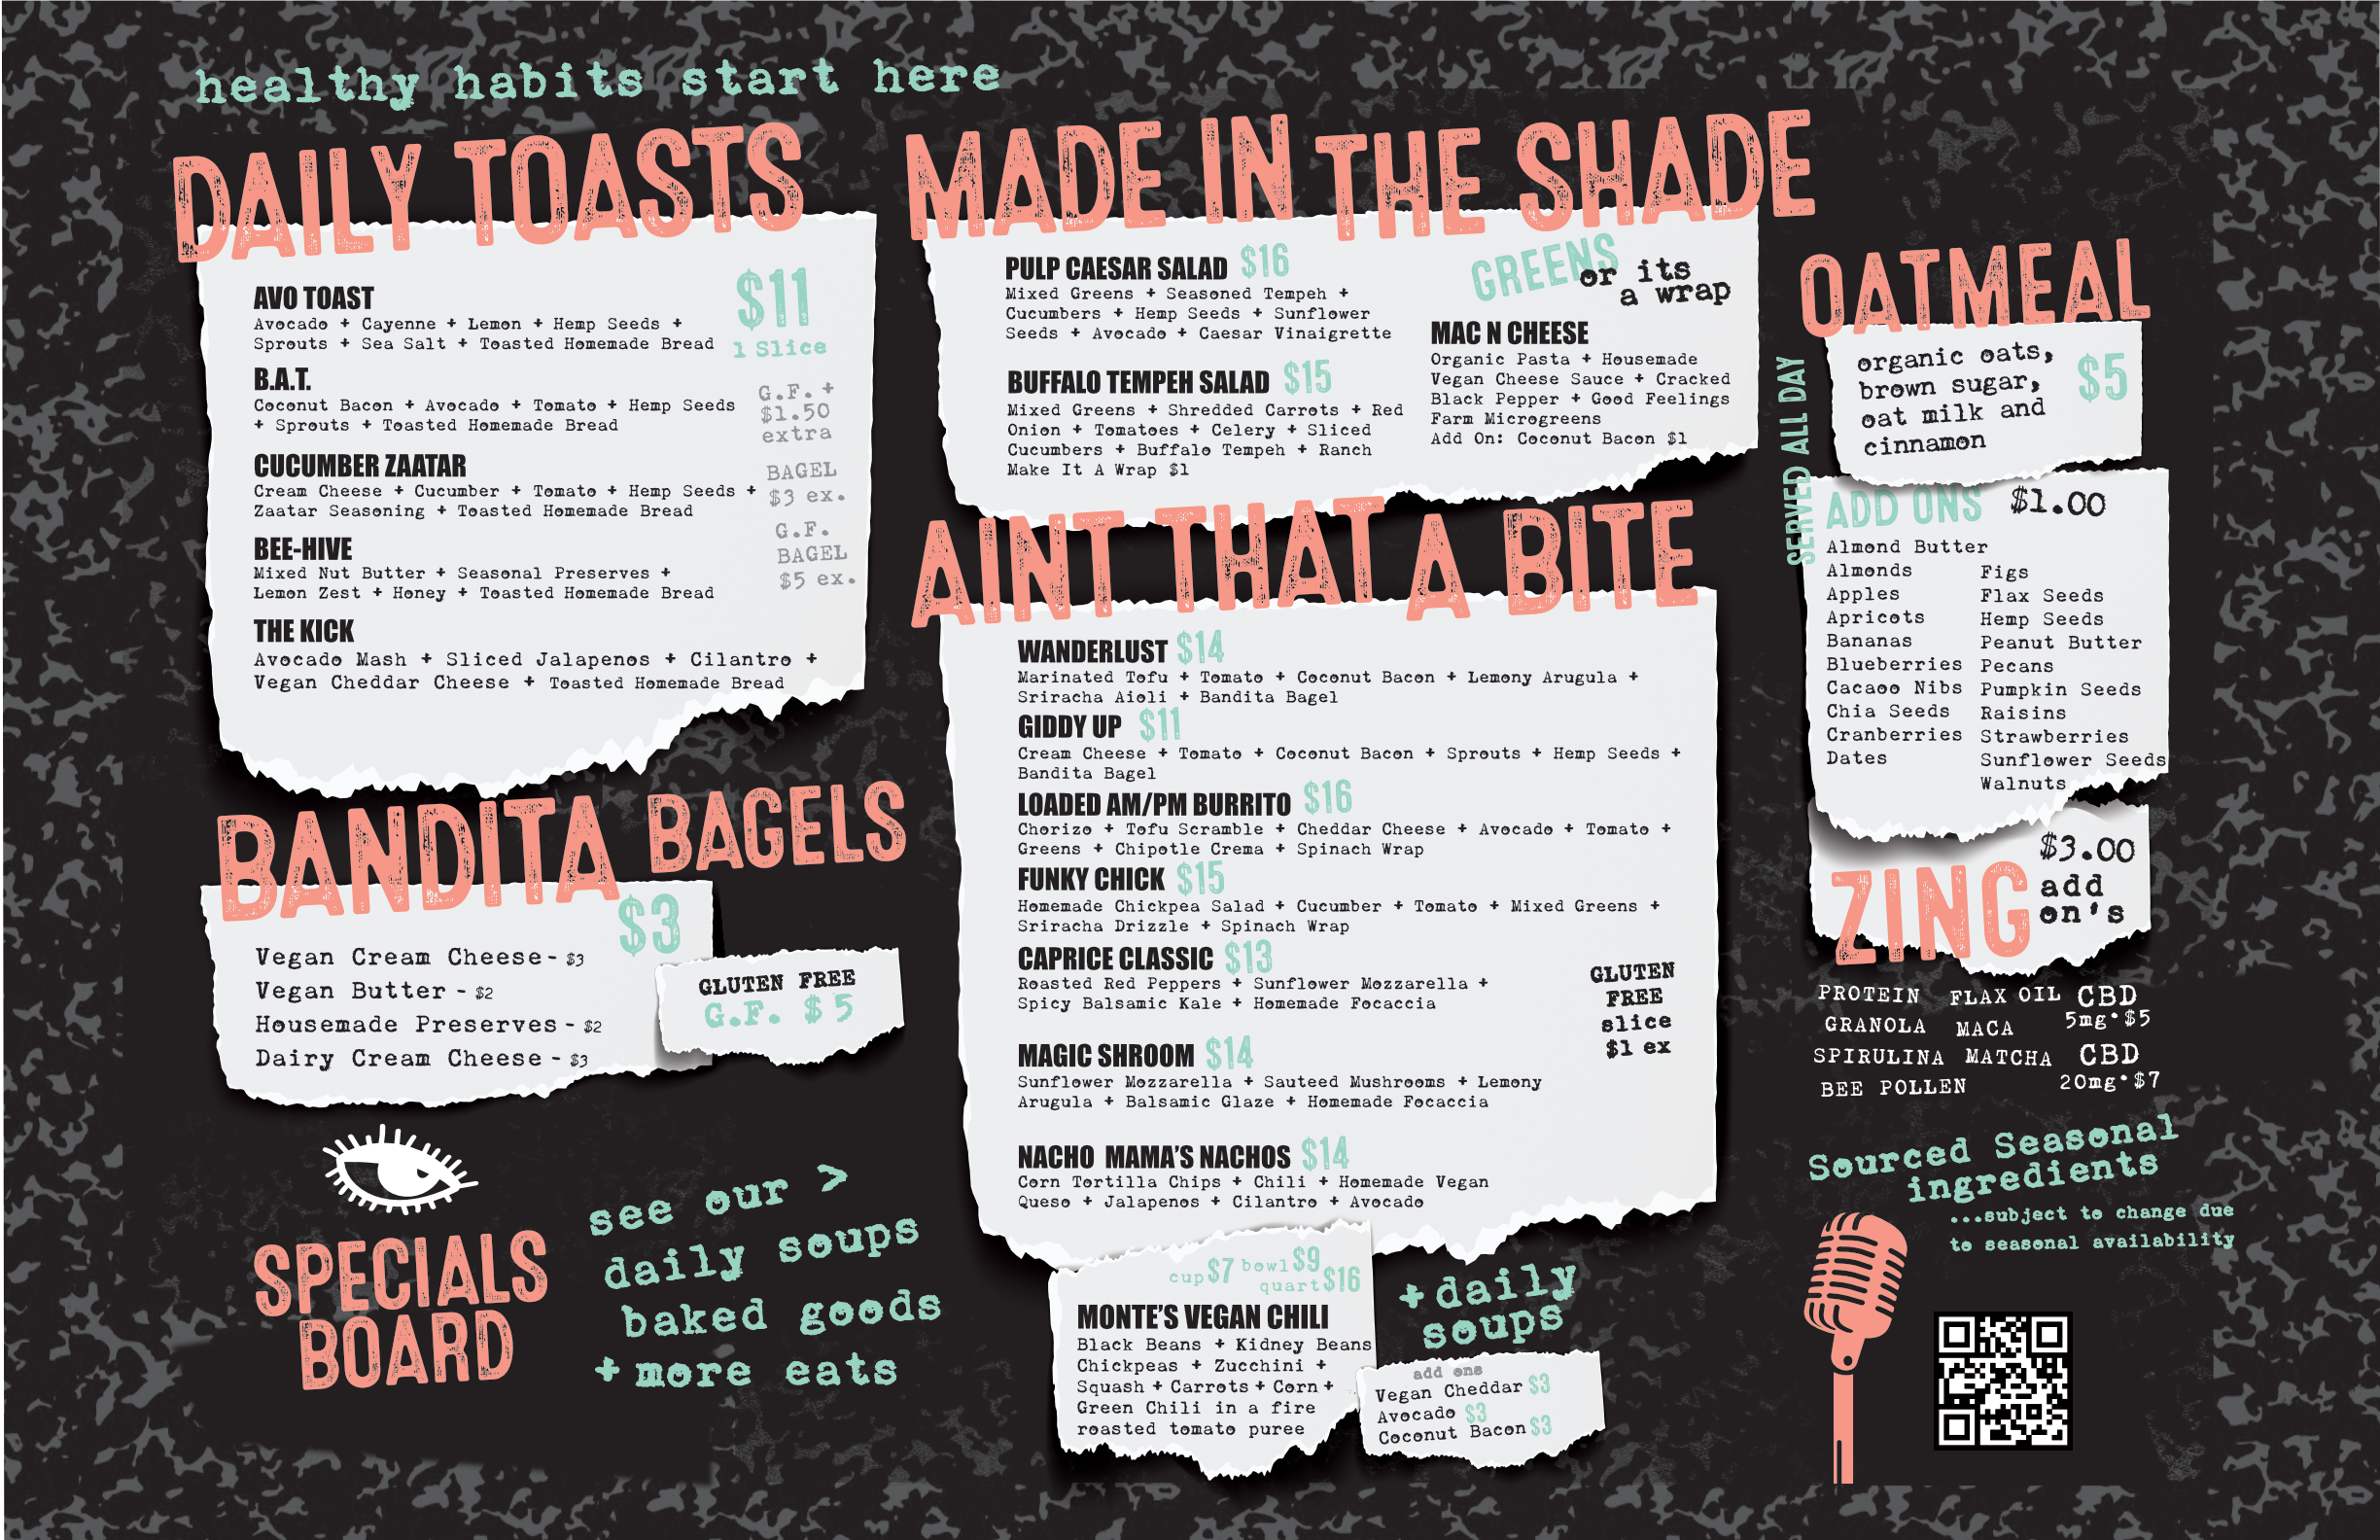 healthy habits start here
DAILY TOASTS
AVO TOAST
Avocado + Cayenne + Lemon + Hemp Seeds +
Sprouts + Sea Salt + Toasted Homemade Bread
$11
1 Slice
B.A.T.
Coconut Bacon + Avocado + Tomato + Hemp Seeds
+ Sprouts + Toasted Homemade Bread
G.F. +
$1.50
extra
CUCUMBER ZAATAR
Cream Cheese + Cucumber + Tomato + Hemp Seeds +
Zaatar Seasoning + Toasted Homemade Bread
BAGEL
$3 ex.
BEE-HIVE
Mixed Nut Butter + Seasonal Preserves +
Lemon Zest + Honey + Toasted Homemade Bread
G.F.
BAGEL
$5 ex.
THE KICK
Avocado Mash + Sliced Jalapenos + Cilantro +
Vegan Cheddar Cheese + Toasted Homemade Bread
BANDITA BAGELS
$3
Vegan Cream Cheese- $3
Vegan Butter - $2
Housemade Preserves- $2
Dairy Cream Cheese- $3
GLUTEN FREE
G.F. $5
SPECIALS
BOARD
see our >
daily soups
baked goods
+ more eats
MADE IN THE SHADE
PULP CAESAR SALAD $16
Mixed Greens + Seasoned Tempeh +
Cucumbers + Hemp Seeds + Sunflower
Seeds + Avocado + Caesar Vinaigrette
BUFFALO TEMPEH SALAD $15
Mixed Greens + Shredded Carrots + Red
Onion + Tomatoes + Celery + Sliced
Cucumbers + Buffalo Tempeh + Ranch
Make It A Wrap $1
GREENS
or its
a wrap
MAC N CHEESE
Organic Pasta + Housemade
Vegan Cheese Sauce + Cracked
Black Pepper + Good Feelings
Farm Microgreens
Add On: Coconut Bacon $1
AINT THAT A BITE
WANDERLUST $14
Marinated Tofu + Tomato + Coconut Bacon + Lemony Arugula +
Sriracha Aioli + Bandita Bagel
GIDDY UP $11
Cream Cheese + Tomato + Coconut Bacon + Sprouts + Hemp Seeds +
Bandita Bagel
LOADED AM/PM BURRITO $16
Chorizo + Tofu Scramble + Cheddar Cheese + Avocado + Tomato +
Greens + Chipotle Crema + Spinach Wrap
FUNKY CHICK $15
Homemade Chickpea Salad + Cucumber + Tomato + Mixed Greens +
Sriracha Drizzle + Spinach Wrap
CAPRICE CLASSIC $13
Roasted Red Peppers + Sunflower Mozzarella +
Spicy Balsamic Kale + Homemade Focaccia
GLUTEN
FREE
slice
$1 ex
MAGIC SHROOM $14
Sunflower Mozzarella + Sauteed Mushrooms + Lemony
Arugula + Balsamic Glaze + Homemade Focaccia
NACHO MAMA'S NACHOS $14
Corn Tortilla Chips + Chili + Homemade Vegan
Queso + Jalapenos + Cilantro + Avocado
cup $7 bowl $9
quart $16
MONTE'S VEGAN CHILI
Black Beans + Kidney Beans
Chickpeas + Zucchini +
Squash + Carrots + Corn +
Green Chili in a fire
roasted tomato puree
+ daily
soups
add ons
Vegan Cheddar $3
Avocado $3
Coconut Bacon $3
OATMEAL
SERVED ALL DAY
organic oats,
brown sugar,
oat milk and
cinnamon
$5
ADD ONS $1.00
Almond Butter
Almonds
Apples
Apricots
Bananas
Blueberries
Cacaoo Nibs
Chia Seeds
Cranberries
Dates
Figs
Flax Seeds
Hemp Seeds
Peanut Butter
Pecans
Pumpkin Seeds
Raisins
Strawberries
Sunflower Seeds
Walnuts
ZING
$3.00
add
on's
PROTEIN FLAX OIL CBD
5mg·$5
GRANOLA MACA
SPIRULINA MATCHA CBD
20mg·$7
BEE POLLEN
Sourced Seasonal
ingredients
...subject to change due
to seasonal availability